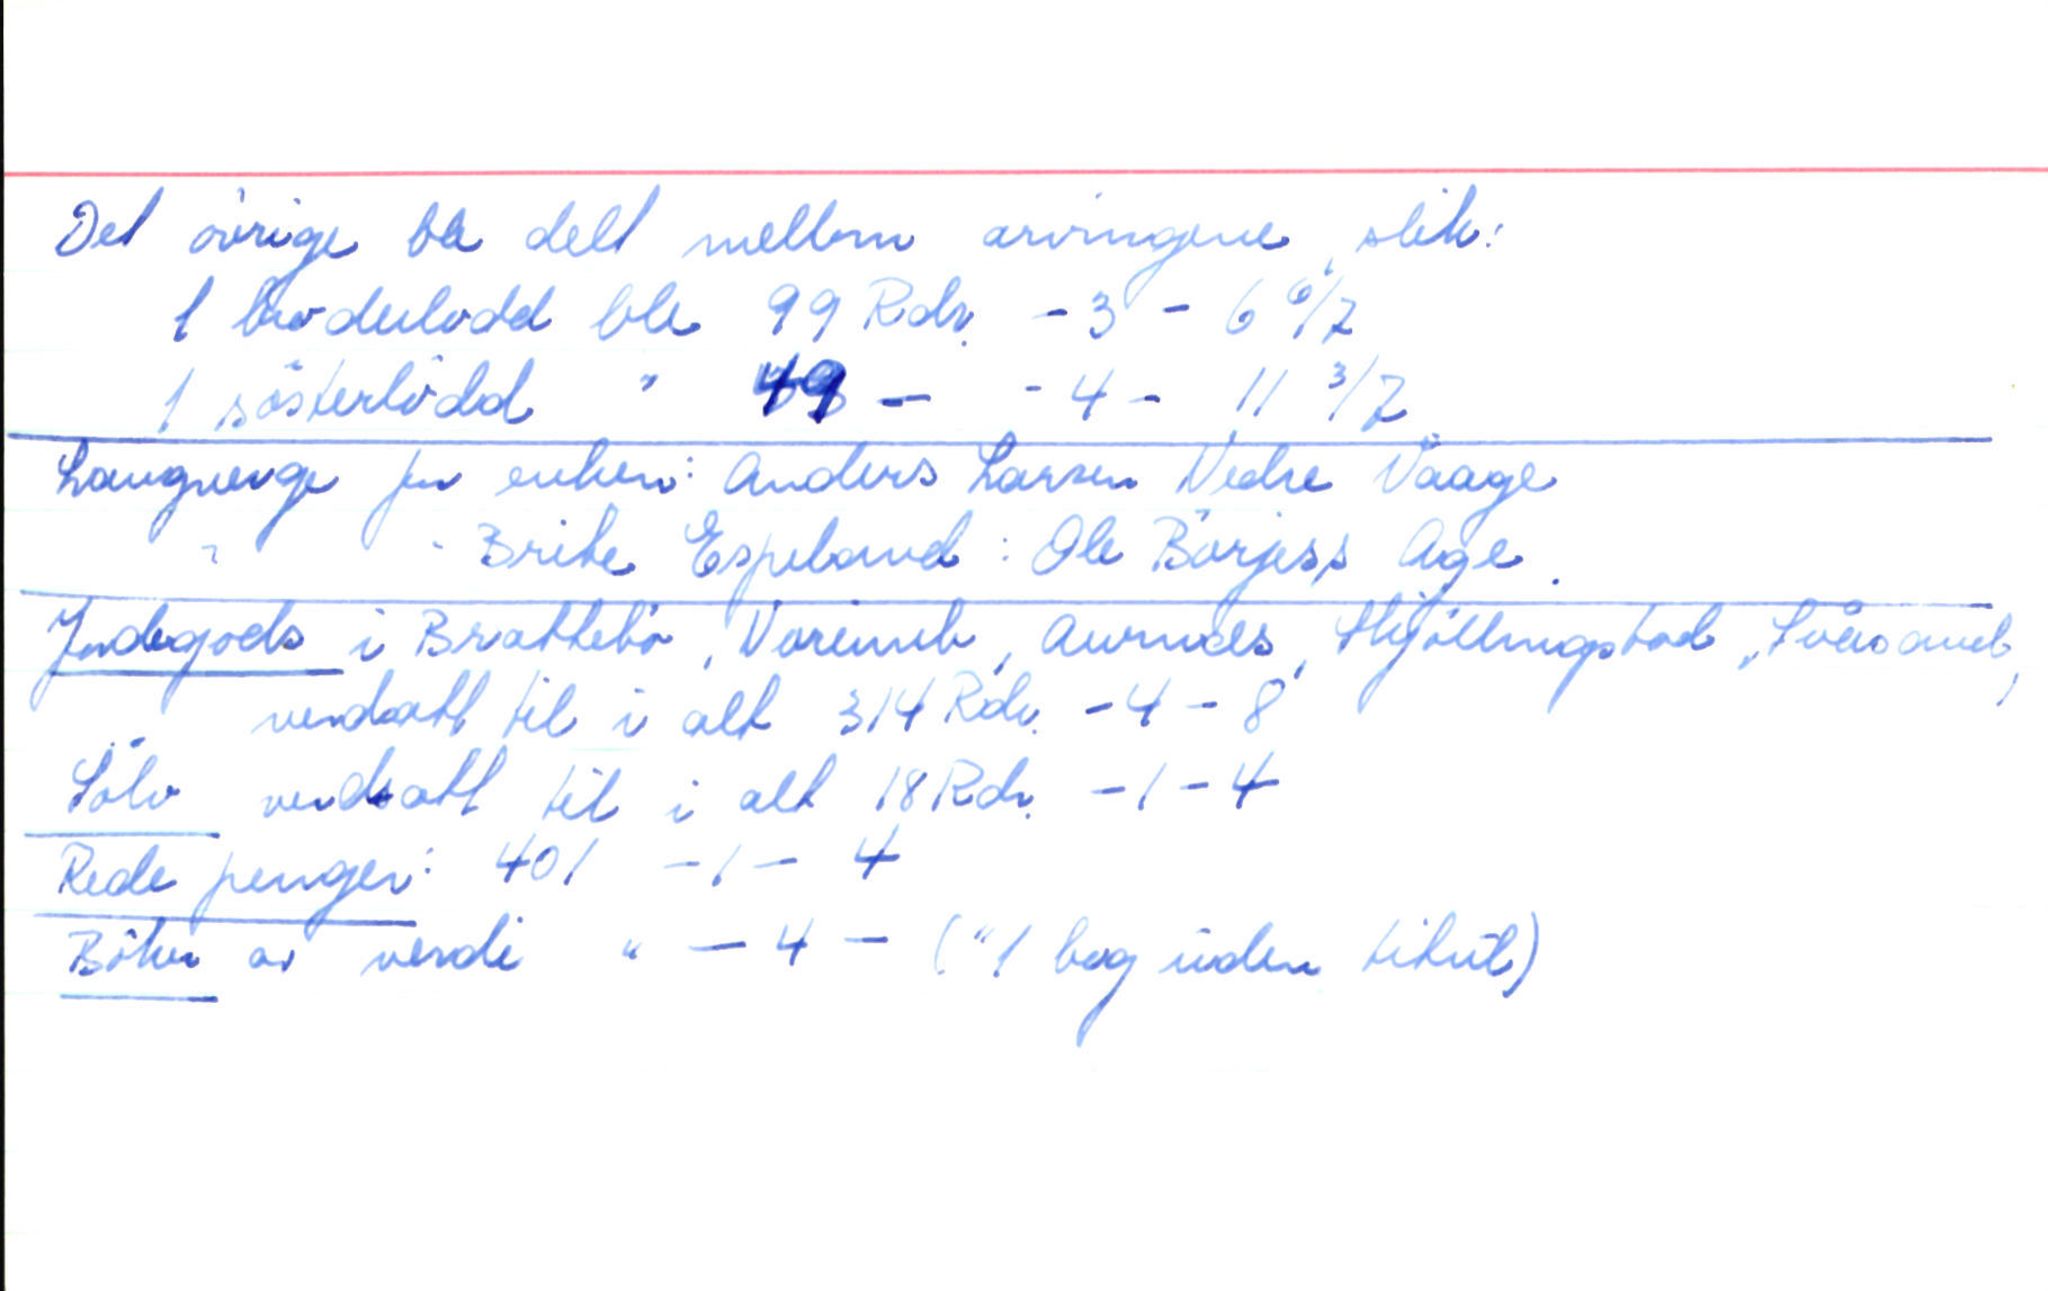 Det övrige ble delt mellom arvingene slik:
1 broderlodd ble 99 Rdr. - 3 - 6 6/7
1 søsterlodd " 49 - - 4 - 11 3/7
Laugverge for enken: Anders Larsen Nedre Vaage
" - Brite Espeland : Ole Börjess Age.
Jordegods i Brattebö, , Aurnes, Skjöllingstad,
verdsatt til i alt 314 Rdr. - 4 - 8
Sölv verdsatt til i alt 18 Rdr. - 1 - 4
Rede penger: 401 - 1 - 4
Böker av verdi " - 4 - ("1 bog uden titul)